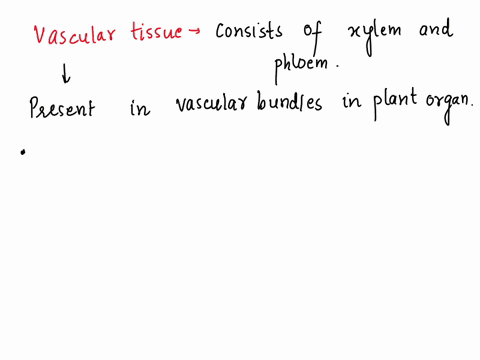 Vascular tissue → Consists of xylem and
phloem.
↓
Present in vascular bundles in plant organ.
•